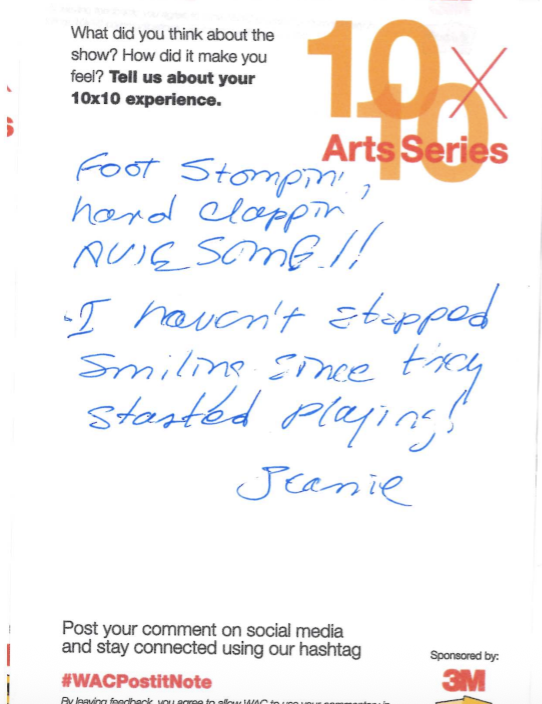 What did you think about the
show? How did it make you
feel? Tell us about your
10x10 experience.
10x10
Arts Series
Foot Stompin',
hand clappin'
AWESOME!!
-I haven't stopped
smiling since they
started playing!
Jeanie
Post your comment on social media
and stay connected using our hashtag
#WACPostitNote
Sponsored by:
3M
By leaving feedback, you agree to allow WAC to use your